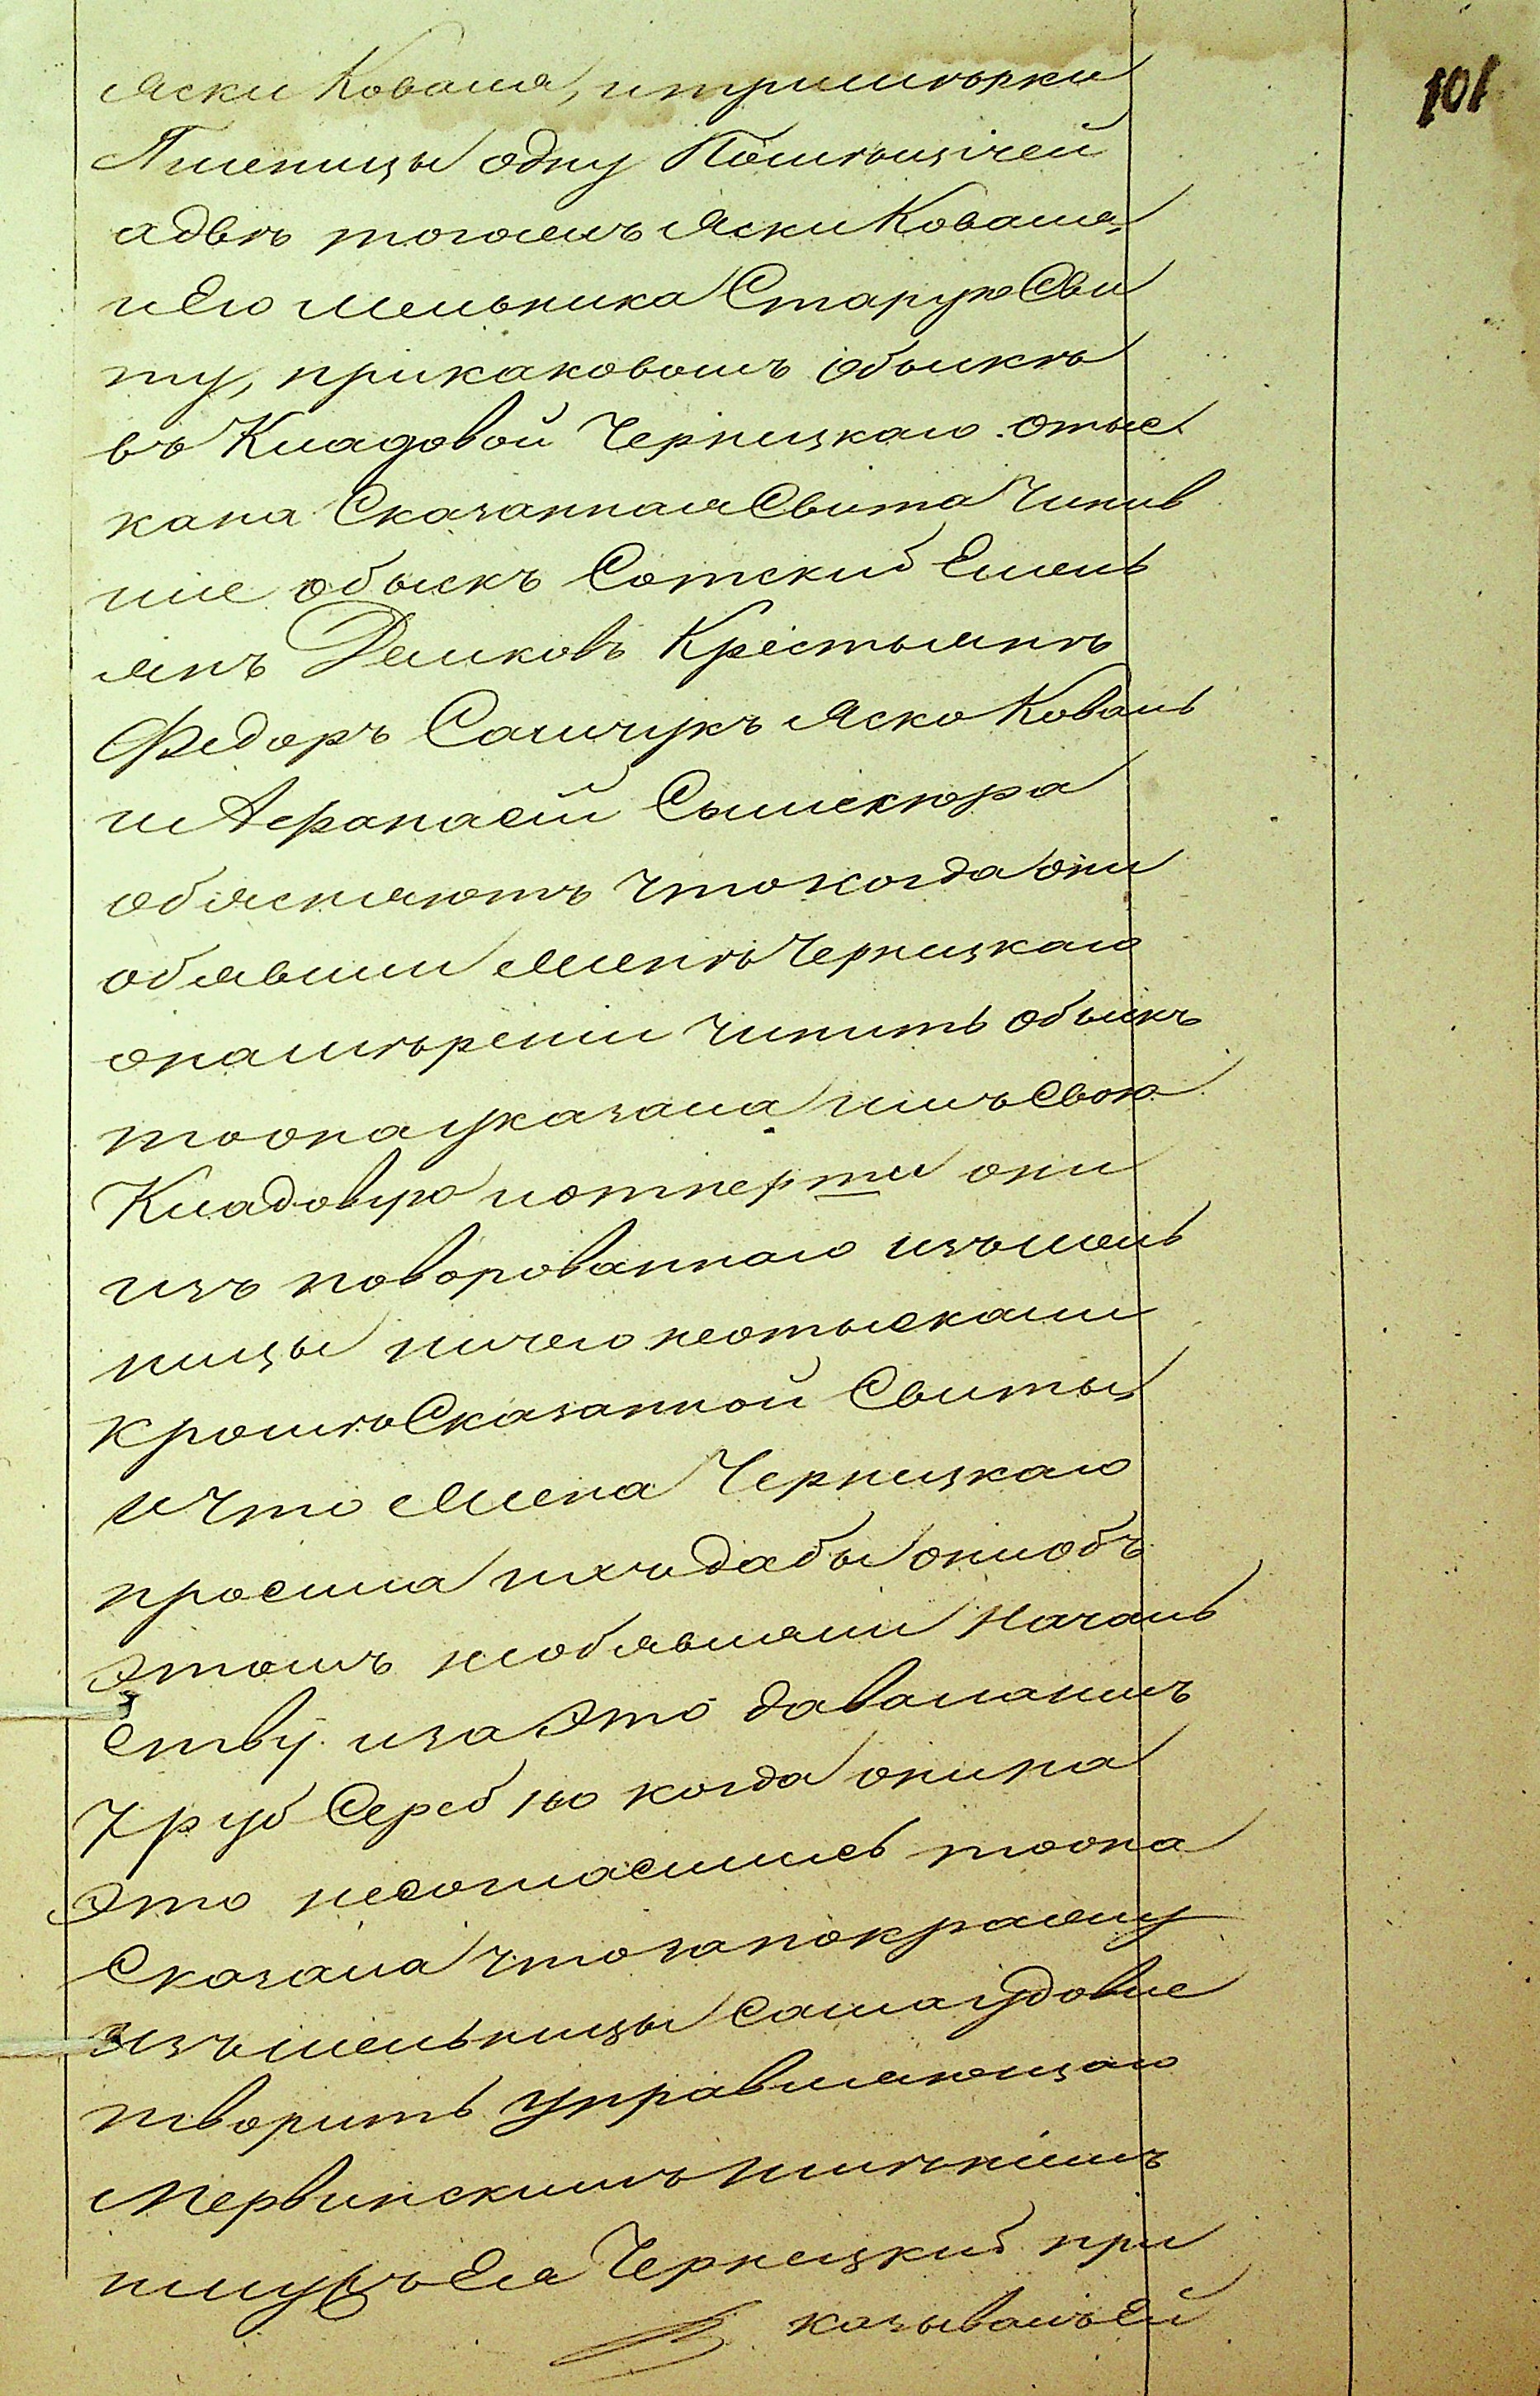 101
Яски Коваля, итримѣрки
Пшеницы одну Помѣщичей
адвѣ тогожъ Яски Коваля,
иЕго мельника Старую Сви
ту, прикаковомъ обыскѣ
въ Кладовой Черницкаго отыс
кана Сказанная Свита Чинив
шіе обыскъ Сотский Емель
янъ Демковъ Крестьянѣ
Федоръ Самчукъ Яско Коваль
и Афанасій
объясняютъ Чтокогда они
обявили Женѣ Черницкаго
онамѣреніи Чинить обыскъ
тоонауказала имъ Свою
Кладовую иотперти они
изъ поворованнаго изъмель
ницы ничего неотыскали
кромѣ Сказанной Свиты
и Что Жена Черницкаго
просила ихъ дабы ониобъ
этомъ необявляли Началь
ству изаЭто давалаимъ
7 руб Сереб ıю когда онина
Это несогласились тоона
Сказала Чтозапокражу
изъмельницы Самаудовле
творитъ Управляющаго
Мервинскимъ Имѣніемъ
Ея Черницкий при
казывалъ Ей